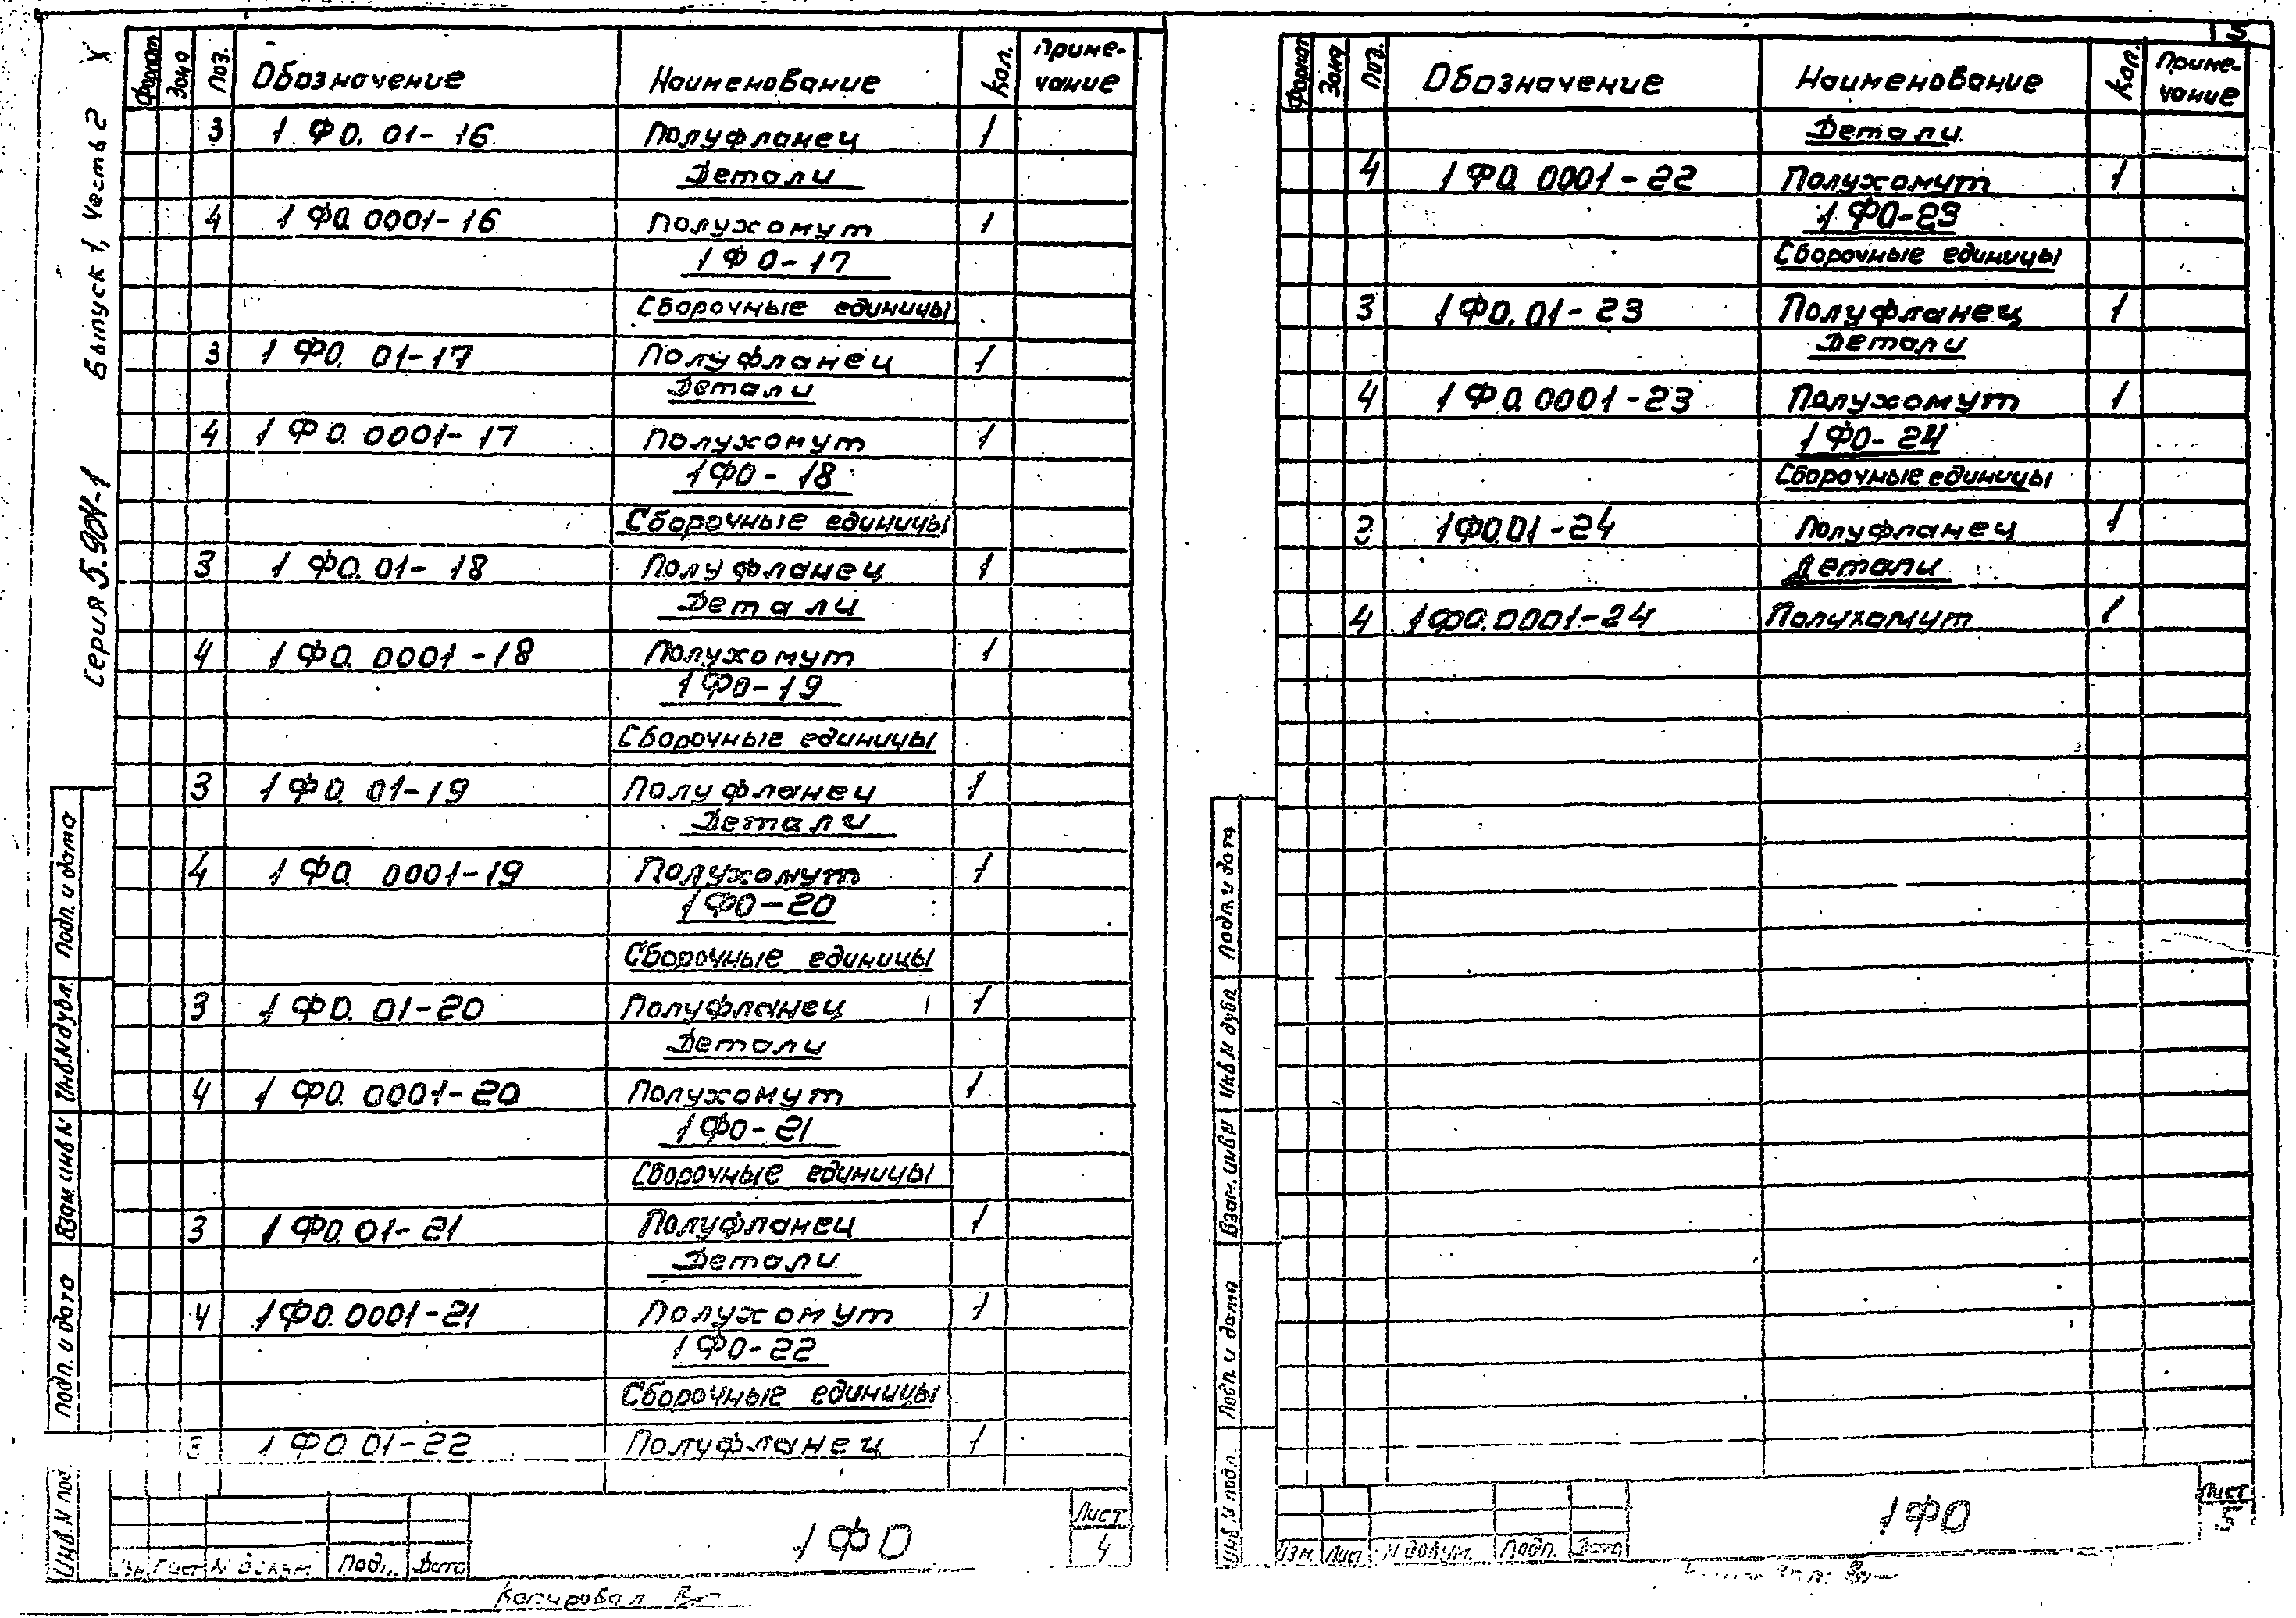 Серия 5.904-1 Выпуск 1, Честь 2
Формат Зона Поз. Обозначение Наименование Кол. Приме-
чание
3 1 ФО. 01-16 Полуфланец 1
Детали
4 1 ФО. 0001-16 Полухомут 1
1 ФО-17
Сборочные единицы
3 1 ФО. 01-17 Полуфланец 1
Детали
4 1 ФО. 0001-17 Полухомут 1
1 ФО-18
Сборочные единицы
3 1 ФО. 01-18 Полуфланец 1
Детали
4 1 ФО. 0001-18 Полухомут 1
1 ФО-19
Сборочные единицы
3 1 ФО. 01-19 Полуфланец 1
Детали
4 1 ФО. 0001-19 Полухомут 1
1 ФО-20
Сборочные единицы
3 1 ФО. 01-20 Полуфланец 1
Детали
4 1 ФО. 0001-20 Полухомут 1
1 ФО-21
Сборочные единицы
3 1 ФО. 01-21 Полуфланец 1
Детали
4 1 ФО. 0001-21 Полухомут 1
1 ФО-22
Сборочные единицы
3 1 ФО. 01-22 Полуфланец 1
Подп. и дата
Инв. N дубл.
Взам. инв. N
Подп. и дата
Инв. N под.
Лист N докум. Подп. Дата
1 ФО
Лист
4
Копировал
5
Формат Зона Поз. Обозначение Наименование Кол. Приме-
чание
Детали
4 1 ФО. 0001-22 Полухомут 1
1 ФО-23
Сборочные единицы
3 1 ФО. 01-23 Полуфланец 1
Детали
4 1 ФО. 0001-23 Полухомут 1
1 ФО-24
Сборочные единицы
3 1 ФО.01-24 Полуфланец 1
Детали
4 1 ФО.0001-24 Полухомут 1
Подп. и дата
Инв. N дубл.
Взам. инв. N
Подп. и дата
Инв. N подл.
Изм. Лист N докум. Подп. Дата
1 ФО
Лист
5